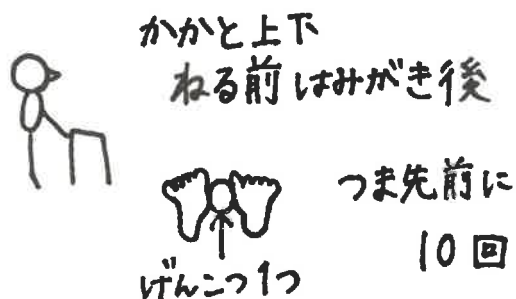 かかと上下
ねる前はみがき後
つま先前に
10回
げんこつ1つ